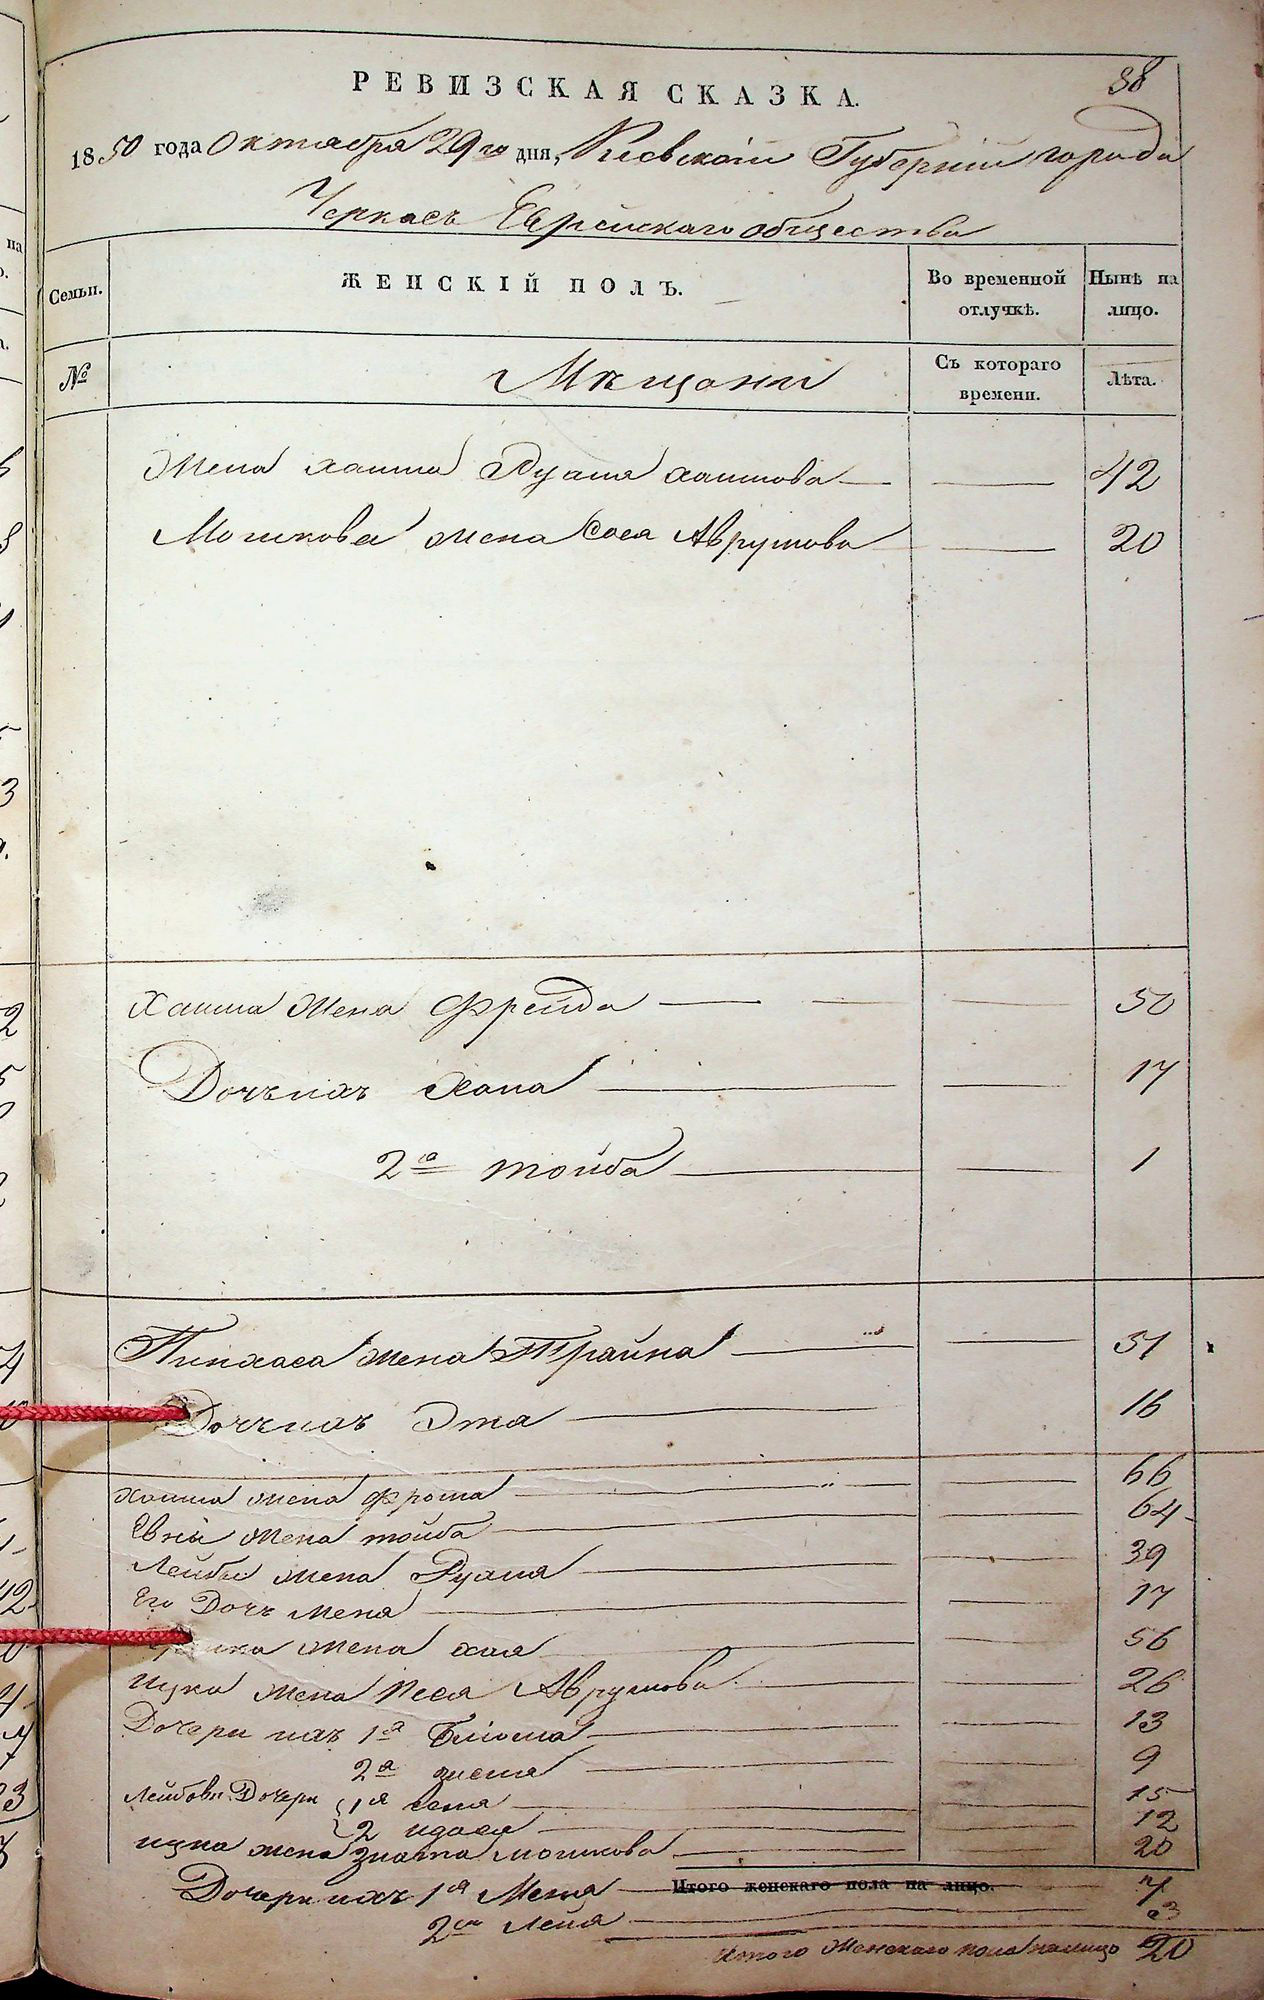 РЕВИЗСКАЯ СКАЗКА. 38
1850 года Октября 29го дня, Киевской Губернии города
Черкас Еврейскаго общества
Семьи. ЖЕНСКІЙ ПОЛЪ. Во временной отлучкѣ. Нынѣ на лицо.
№ Мѣщани Съ котораго времени. Лѣта.
Жена хаима Рухля хаимова 42
Мошкова жена Сося Аврумова 20
Хаима жена Фрейда 50
Дочь ихъ Хана 17
2я тойба 1
Пинхаса жена Трайна 51
Дочь ихъ Эта 16
хаима жена Фрома 66
жена тойба 64
Лейбы жена Рухля 39
Его Дочь Меня 17
жена хая 56
ицка жена Песя Аврумова 26
Дочери ихъ 1я Блюма 13
2я 9
Лейбовы Дочери 1я 15
2 12
ицка жена Злата мошкова 20
Итого женскаго пола на лицо.
Дочери ихъ 1я Меня 7
2я Лея 3
Итого Женскаго пола налицо 20